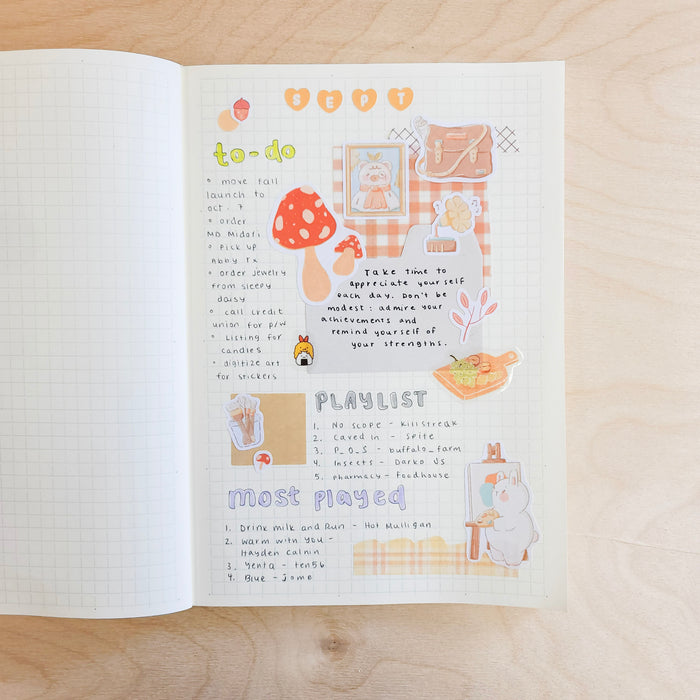 SEPT
to-do
◦ move fall
launch to
oct. 7
◦ order
MD Midori
◦ pick up
Abby Rx
◦ order jewelry
from sleepy
daisy
◦ call credit
union for p/w
◦ Listing for
candles
◦ digitize art
for stickers
Take time to
appreciate yourself
each day. Don't be
modest: admire your
achievements and
remind yourself of
your strengths.
PLAYLIST
1. No scope - killstreak
2. Caved in - Spite
3. P_O_S - buffalo_farm
4. Insects - Darko US
5. Pharmacy - Foodhouse
most played
1. Drink milk and Run - Hot Mulligan
2. Warm with you -
Hayden Calnin
3. Yenta - ten56
4. Blue - jome